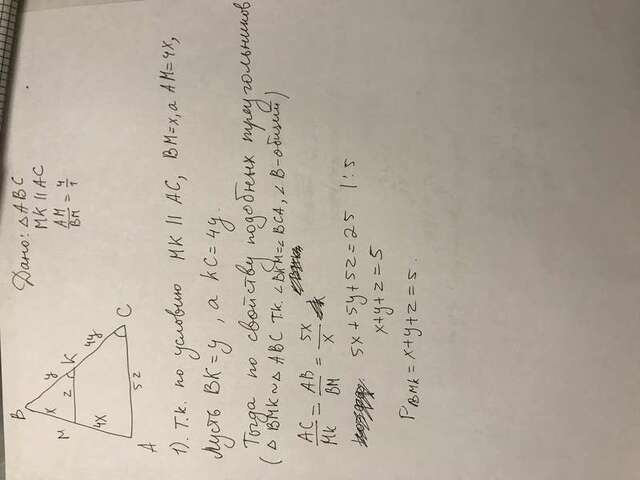 Дано: △ABC
MK || AC
AM/BM = 4/1
B
x
y
M
z
K
4x
4y
A
5z
C
1). Т.к. по условию MK || AC, BM=x, а AM=4x,
Пусть BK=y, а KC=4y.
Тогда по свойству подобных треугольников
(△ BMK ~ △ ABC т.к. ∠BKM=∠BCA, ∠B-общий)
AC/MK = AB/BM = 5x/x
5x+5y+5z=25 | :5
x+y+z=5
P BMK = x+y+z=5.